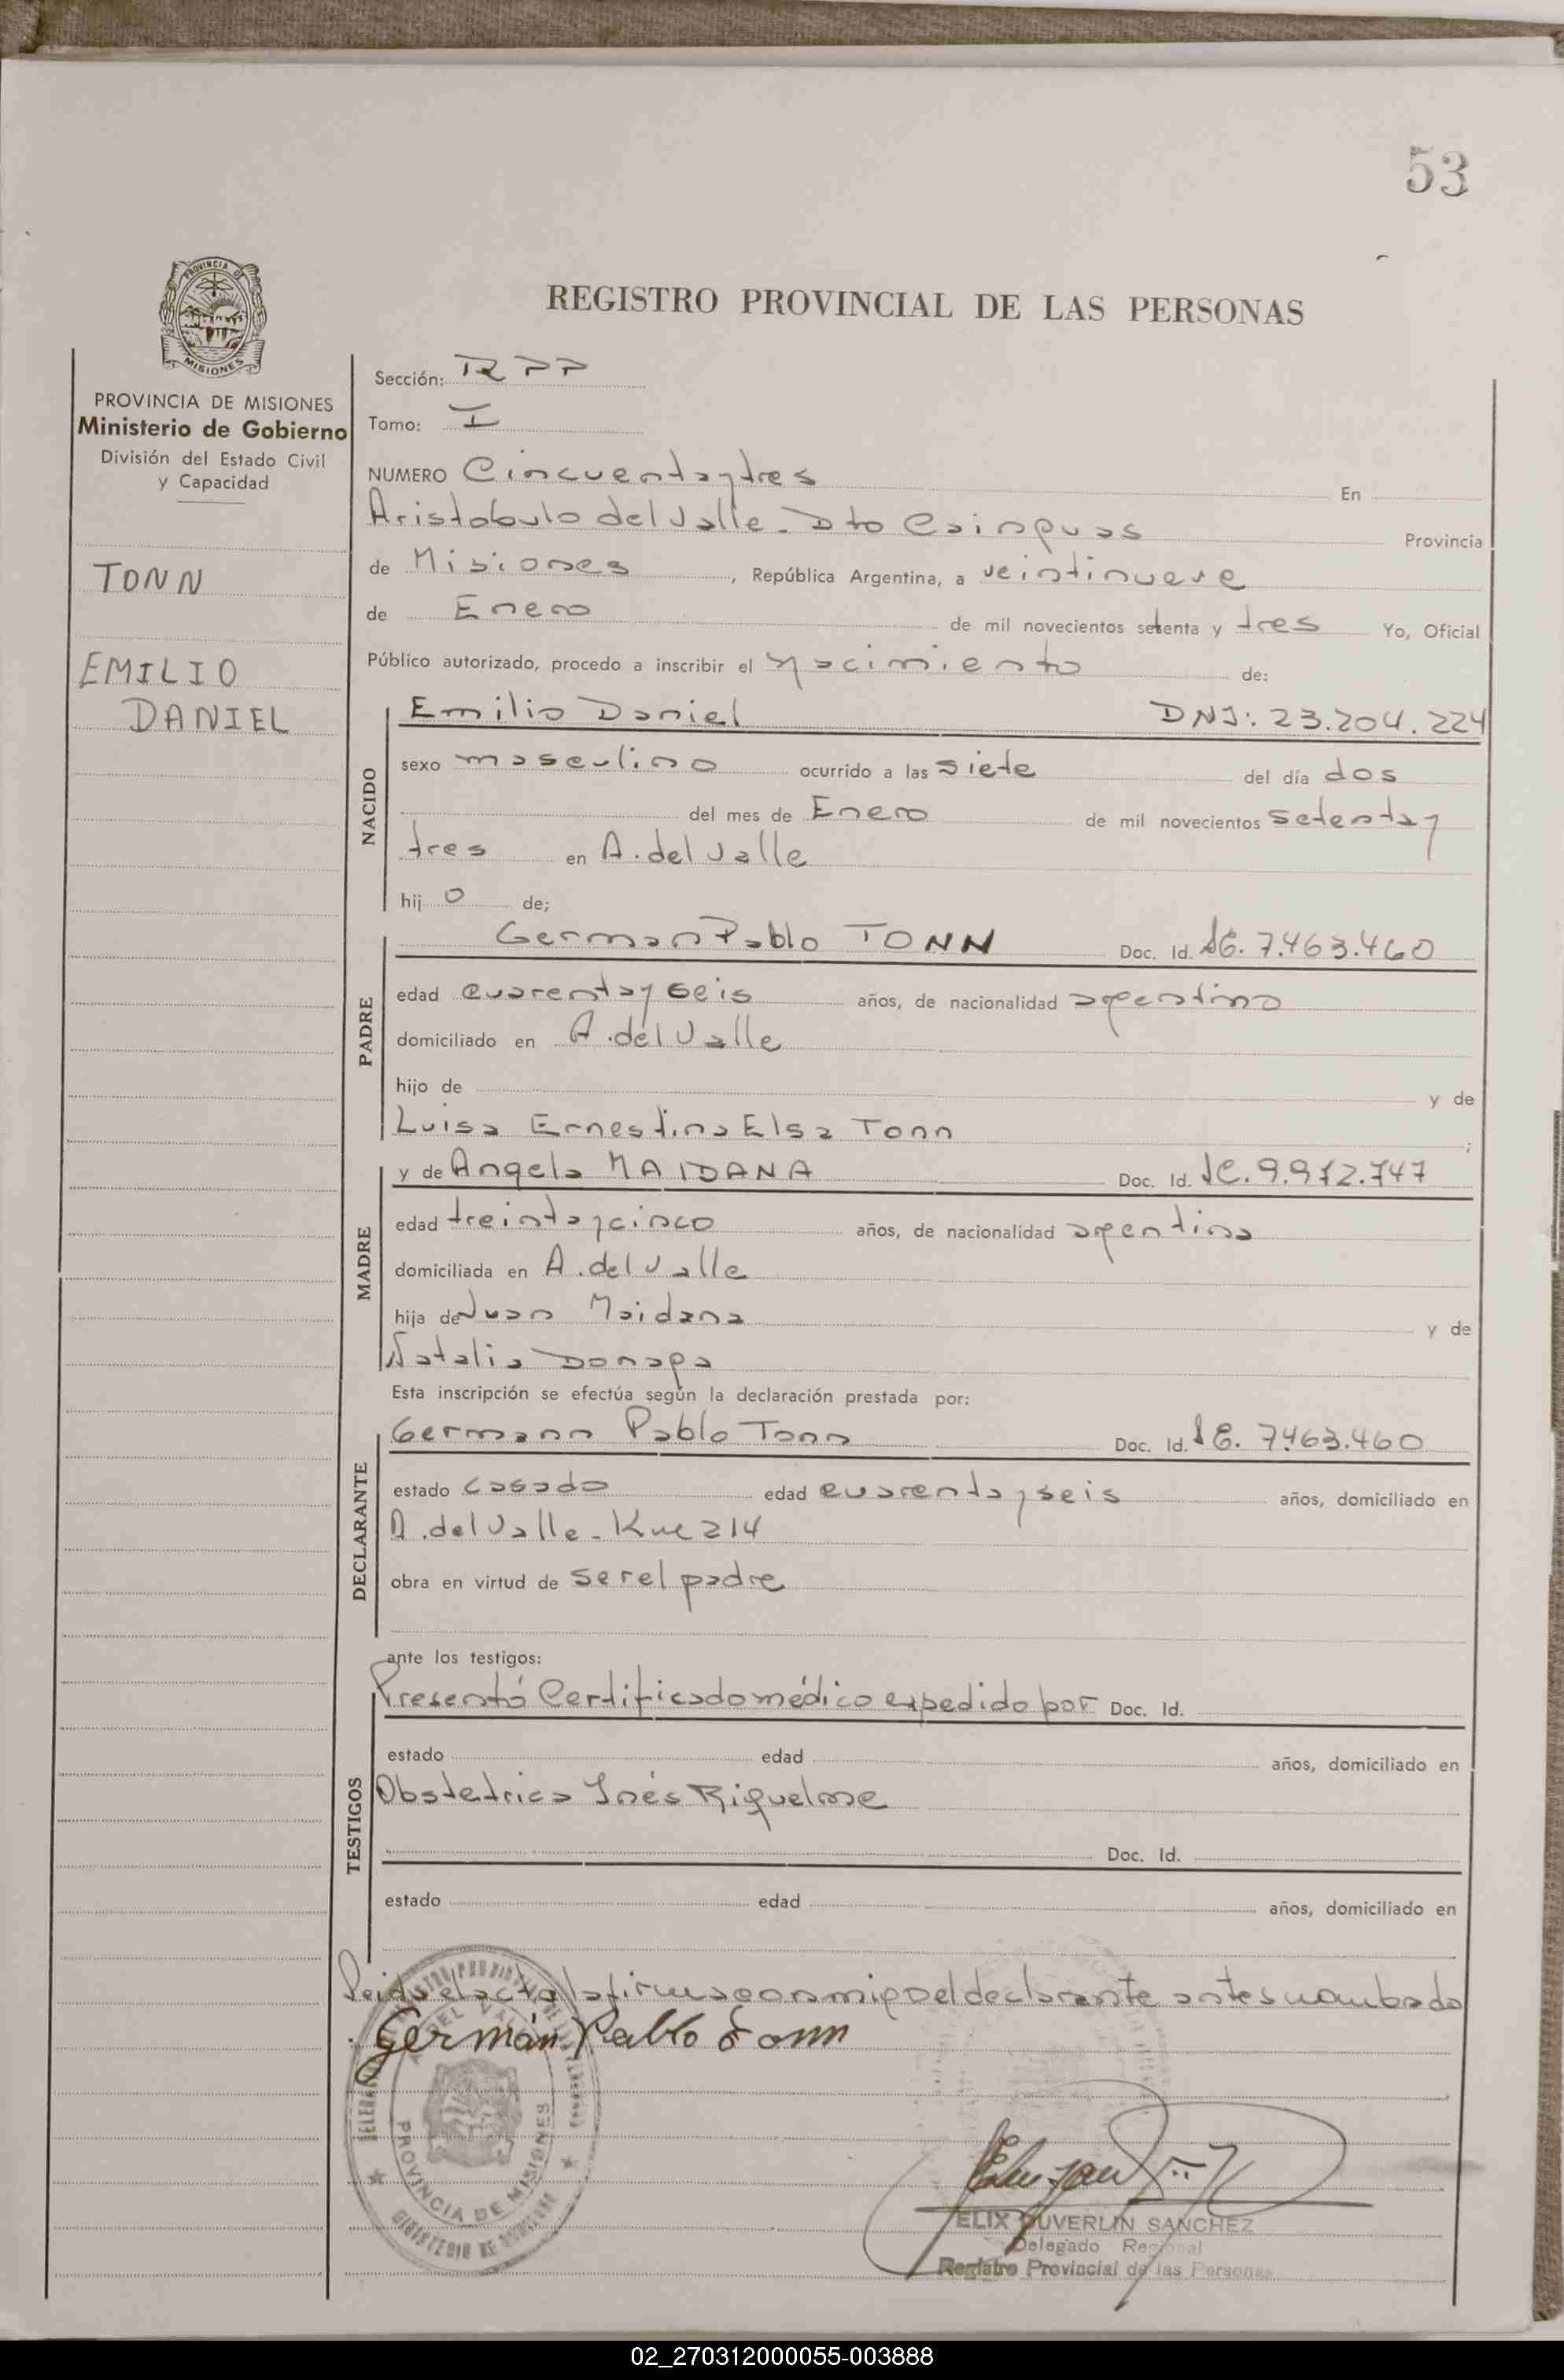 53
PROVINCIA DE
MISIONES
REGISTRO PROVINCIAL DE LAS PERSONAS
PROVINCIA DE MISIONES
Ministerio de Gobierno
División del Estado Civil
y Capacidad
TONN
EMILIO
DANIEL
Sección: RPP
Tomo: I
NUMERO Cincuenta y tres En
Aristobulo del Valle - Dto Cainguas Provincia
de Misiones, República Argentina, a veintinueve
de Enero de mil novecientos setenta y tres Yo, Oficial
Público autorizado, procedo a inscribir el Nacimiento de:
NACIDO
Emilio Daniel DNI: 23.204.224
sexo masculino ocurrido a las siete del día dos
del mes de Enero de mil novecientos setenta y
tres en A. del Valle
hij o de;
PADRE
German Pablo TONN Doc. Id. LE. 7.463.460
edad cuarenta y seis años, de nacionalidad argentina
domiciliado en A. del Valle
hijo de y de
Luisa Ernestina Elsa Tonn ;
MADRE
y de Angela MAIDANA Doc. Id. LC. 9.912.747
edad treinta y cinco años, de nacionalidad argentina
domiciliada en A. del Valle
hija de Juan Maidana y de
Natalia
Esta inscripción se efectúa según la declaración prestada por:
DECLARANTE
Germann Pablo Tonn Doc. Id. LE. 7.463.460
estado casado edad cuarenta y seis años, domiciliado en
A. del Valle - 214
obra en virtud de ser el padre
ante los testigos:
TESTIGOS
Presentó Certificado médico expedido por Doc. Id.
estado edad años, domiciliado en
Obstetrica Inés Riquelme
Doc. Id.
estado edad años, domiciliado en
Leida el acta la firma conmigo el declarante antes nombrado
Germán Pablo Tonn
PROVINCIA DE MISIONES
ELIX DUVERLIN SANCHEZ
Delegado Regional
Registro Provincial de las Personas
02_270312000055-003888